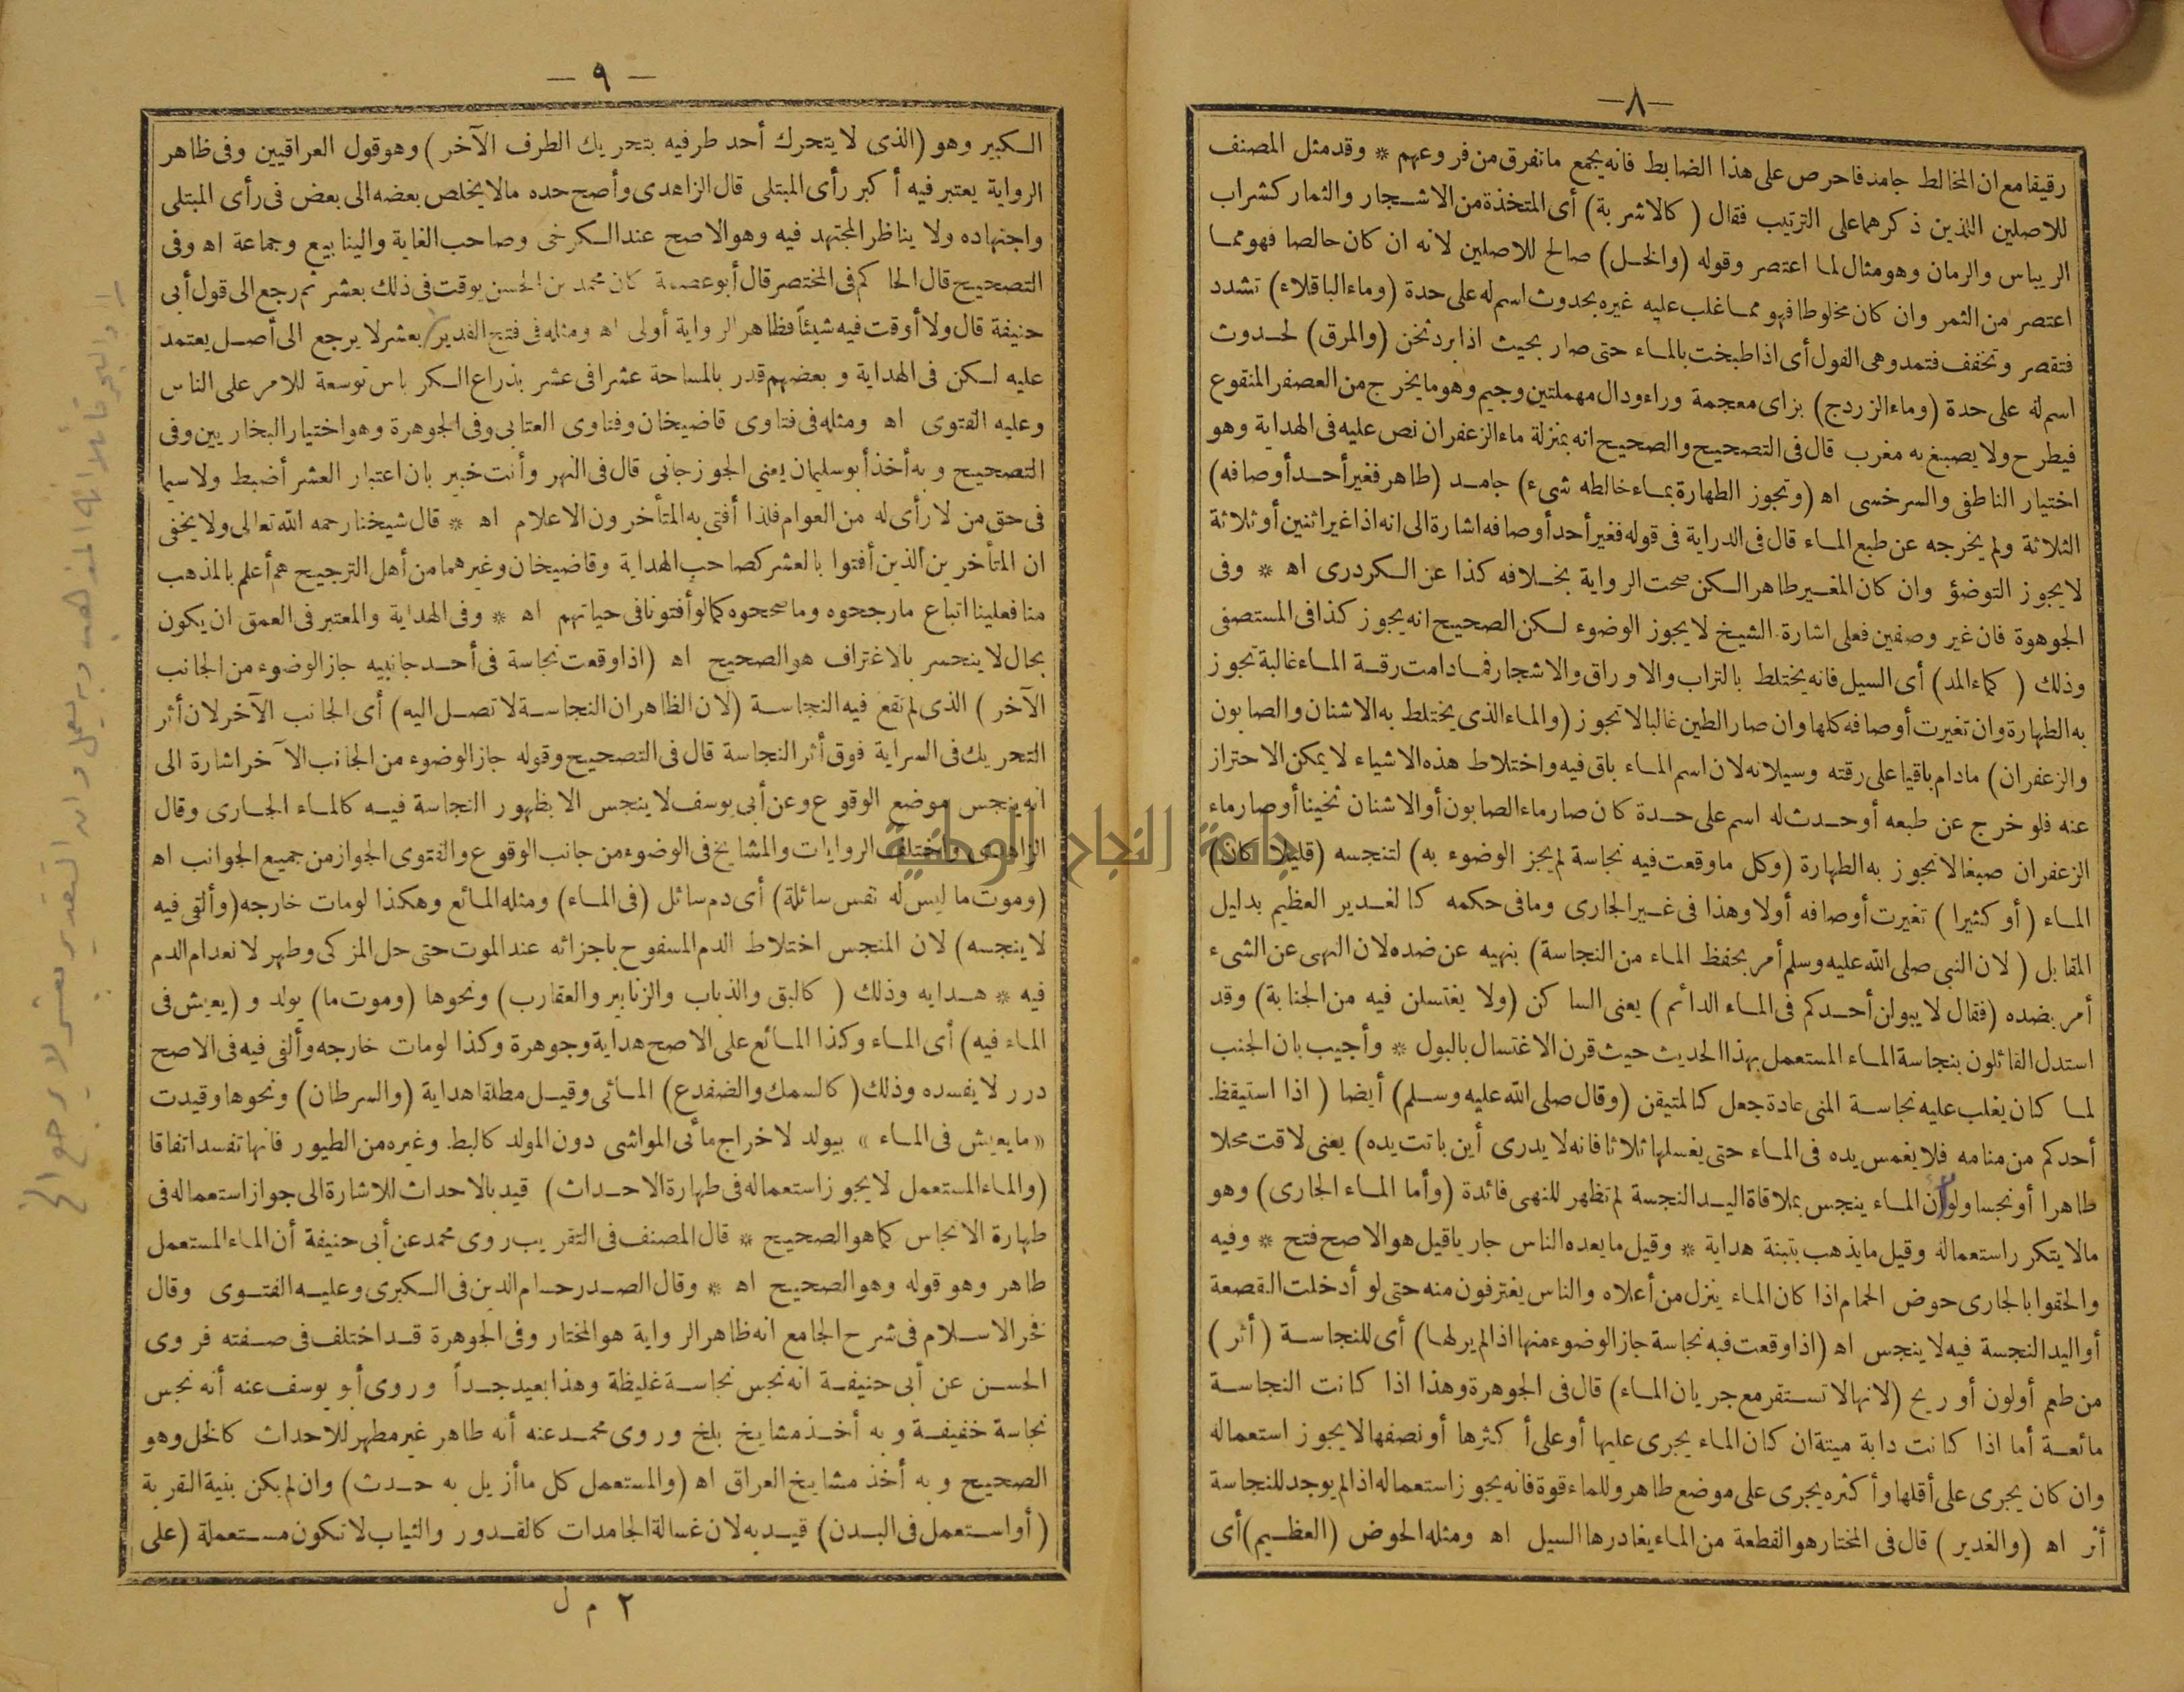 —٨—
رقيقا مع ان المخالط جامد فاحرص على هذا الضابط فانه يجمع ما تفرق من فروعهم * وقد مثل المصنف
للاصلين اللذين ذكرهما على الترتيب فقال (كالاشربة) أى المتخذة من الاشجار والثمار كشراب
الريباس والرمان وهو مثال لما اعتصر وقوله (والخل) صالح للاصلين لانه ان كان خالصا فهو مما
اعتصر من الثمر وان كان مخلوطا فهو مما غلب عليه غيره بحدوث اسم له على حدة (وماء الباقلاء) تشدد
فتقصر وتخفف فتمد وهى الفول أى اذا طبخت بالماء حتى صار بحيث اذا برد ثخن (والمرق) لحدوث
اسم له على حدة (وماء الزردج) بزاى معجمة وراء ودال مهملتين وجيم وهو ما يخرج من العصفر المنقوع
فيطرح ولا يصبغ به مغرب قال فى التصحيح والصحيح انه بمنزلة ماء الزعفران نص عليه فى الهداية وهو
اختيار الناطفى والسرخسى اه (وتجوز الطهارة بماء خالطه شىء) جامد (طاهر فغير أحد أوصافه)
الثلاثة ولم يخرجه عن طبع الماء قال فى الدراية فى قوله فغير أحد أوصافه اشارة الى انه اذا غير اثنين أو ثلاثة
لا يجوز التوضؤ وان كان المغير طاهرا لكن صحت الرواية بخلافه كذا عن الكردرى اه * وفى
الجوهرة فان غير وصفين فعلى اشارة الشيخ لا يجوز الوضوء لكن الصحيح انه يجوز كذا فى المستصفى
وذلك (كماء المد) أى السيل فانه يختلط بالتراب والاوراق والاشجار فما دامت رقة الماء غالبة تجوز
به الطهارة وان تغيرت أوصافه كلها وان صار الطين غالبا لا تجوز (والماء الذى يختلط به الاشنان والصابون
والزعفران) ما دام باقيا على رقته وسيلانه لان اسم الماء باق فيه واختلاط هذه الاشياء لا يمكن الاحتراز
عنه فلو خرج عن طبعه أو حدث له اسم على حدة كان صار ماء الصابون أو الاشنان ثخينا أو صار ماء
الزعفران صبغا لا تجوز به الطهارة (وكل ما وقعت فيه نجاسة لم يجز الوضوء به) لتنجسه (قليلا كان)
الماء (أو كثيرا) تغيرت أوصافه أولا وهذا فى غير الجارى وما فى حكمه كالغدير العظيم بدليل
المقابل (لان النبى صلى الله عليه وسلم أمر بحفظ الماء من النجاسة) بنهيه عن ضده لان النهى عن الشىء
أمر بضده (فقال لا يبولن أحدكم فى الماء الدائم) يعنى الساكن (ولا يغتسلن فيه من الجنابة) وقد
استدل القائلون بنجاسة الماء المستعمل بهذا الحديث حيث قرن الاغتسال بالبول * وأجيب بان الجنب
لما كان يغلب عليه نجاسة المنى عادة جعل كالمتيقن (وقال صلى الله عليه وسلم) أيضا (اذا استيقظ
أحدكم من منامه فلا يغمس يده فى الماء حتى يغسلها ثلاثا فانه لا يدرى أين باتت يده) يعنى لاقت محلا
طاهرا أو نجسا ولو أن الماء ينجس بملاقاة اليد النجسة لم تظهر للنهى فائدة (وأما الماء الجارى) وهو
ما لا يتكرر استعماله وقيل ما يذهب بتبنة هداية * وقيل ما يعده الناس جاريا قيل هو الاصح فتح * وفيه
والحقوا بالجارى حوض الحمام اذا كان الماء ينزل من أعلاه والناس يغترفون منه حتى لو أدخلت القصعة
أو اليد النجسة فيه لا ينجس اه (اذا وقعت فيه نجاسة جاز الوضوء منها اذا لم ير لها) أى للنجاسة (أثر)
من طعم أو لون أو ريح (لانها لا تستقر مع جريان الماء) قال فى الجوهرة وهذا اذا كانت النجاسة
مائعة أما اذا كانت دابة ميتة ان كان الماء يجرى عليها أو على أكثرها أو نصفها لا يجوز استعماله
وان كان يجرى على أقلها وأكثره يجرى على موضع طاهر وللماء قوة فانه يجوز استعماله اذا لم يوجد للنجاسة
أثر اه (والغدير) قال فى المختار هو القطعة من الماء يغادرها السيل اه ومثله الحوض (العظيم) أى
— ٩ —
الكبير وهو (الذى لا يتحرك أحد طرفيه بتحريك الطرف الآخر) وهو قول العراقيين وفى ظاهر
الرواية يعتبر فيه أكبر رأى المبتلى قال الزاهدى وأصح حده ما لا يخلص بعضه الى بعض فى رأى المبتلى
واجتهاده ولا يناظر المجتهد فيه وهو الاصح عند الكرخى وصاحب الغاية والينابيع وجماعة اه وفى
التصحيح قال الحاكم فى المختصر قال أبو عصمة كان محمد بن الحسن يوقت فى ذلك بعشر ثم رجع الى قول أبى
حنيفة قال ولا أوقت فيه شيئاً فظاهر الرواية أولى اه ومثله فى فتح القدير بعشر لا يرجع الى أصل يعتمد
عليه لكن فى الهداية وبعضهم قدر بالمساحة عشرا فى عشر بذراع الكرباس توسعة للامر على الناس
وعليه الفتوى اه ومثله فى فتاوى قاضيخان وفتاوى العتابى وفى الجوهرة وهو اختيار البخاريين وفى
التصحيح وبه أخذ أبو سليمان يعنى الجوزجانى قال فى النهر وأنت خبير بان اعتبار العشر أضبط ولا سيما
فى حق من لا رأى له من العوام فلذا أفتى به المتأخرون الاعلام اه * قال شيخنا رحمه الله تعالى ولا يخفى
ان المتأخرين الذين أفتوا بالعشر كصاحب الهداية وقاضيخان وغيرهما من أهل الترجيح هم أعلم بالمذهب
منا فعلينا اتباع ما رجحوه وما صححوه كما لو أفتونا فى حياتهم اه * وفى الهداية والمعتبر فى العمق ان يكون
بحال لا ينحسر بالاغتراف هو الصحيح اه (اذا وقعت نجاسة فى أحد جانبيه جاز الوضوء من الجانب
الآخر) الذى لم تقع فيه النجاسة (لان الظاهر ان النجاسة لا تصل اليه) أى الجانب الآخر لان أثر
التحريك فى السراية فوق أثر النجاسة قال فى التصحيح وقوله جاز الوضوء من الجانب الآخر اشارة الى
انه ينجس موضع الوقوع وعن أبى يوسف لا ينجس الا بظهور النجاسة فيه كالماء الجارى وقال
الزاهدى واختلف الروايات والمشايخ فى الوضوء من جانب الوقوع والفتوى الجواز من جميع الجوانب اه
(وموت ما ليس له نفس سائلة) أى دم سائل (فى الماء) ومثله المائع وهكذا لو مات خارجه (وألقى فيه
لا ينجسه) لان المنجس اختلاط الدم المسفوح باجزائه عند الموت حتى حل المزكى وطهر لانعدام الدم
فيه * هدايه وذلك (كالبق والذباب والزنابير والعقارب) ونحوها (وموت ما) يولد و (يعيش فى
الماء فيه) أى الماء وكذا المائع على الاصح هداية وجوهرة وكذا لو مات خارجه وألقى فيه فى الاصح
درر لا يفسده وذلك (كالسمك والضفدع) المائى وقيل مطلقا هداية (والسرطان) ونحوها وقيدت
«ما يعيش فى الماء» بيولد لاخراج مأئى المواشى دون المولد كالبط وغيره من الطيور فانها تفسد اتفاقا
(والماء المستعمل لا يجوز استعماله فى طهارة الاحداث) قيد بالاحداث للاشارة الى جواز استعماله فى
طهارة الانجاس كما هو الصحيح * قال المصنف فى التقريب روى محمد عن أبى حنيفة أن الماء المستعمل
طاهر وهو قوله وهو الصحيح اه * وقال الصدر حسام الدين فى الكبرى وعليه الفتوى وقال
فخر الاسلام فى شرح الجامع انه ظاهر الرواية هو المختار وفى الجوهرة قد اختلف فى صفته فروى
الحسن عن أبى حنيفة انه نجس نجاسة غليظة وهذا بعيد جداً وروى أبو يوسف عنه أنه نجس
نجاسة خفيفة وبه أخذ مشايخ بلخ وروى محمد عنه أنه طاهر غير مطهر للاحداث كالخل وهو
الصحيح وبه أخذ مشايخ العراق اه (والمستعمل كل ما أزيل به حدث) وان لم يكن بنية القربة
(أو استعمل فى البدن) قيد به لان غسالة الجامدات كالقدور والثياب لا تكون مستعملة (على
٢ م ل
والبحر قائلا انه المذهب وبه يعمل وان التقدير بعشر لا يرجع الخ
جامعة النجاح الوطنية